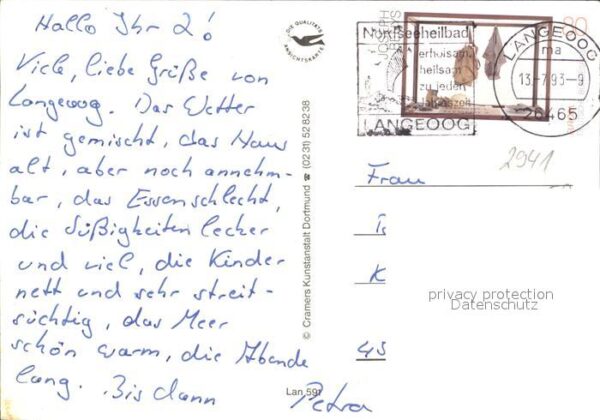 Hallo Ihr 2!
Viele, liebe Grüße von
Langeoog. Das Wetter
ist gemischt, das Haus
alt, aber noch annehm-
bar, das Essen schlecht,
die Süßigkeiten lecker
und viel, die Kinder
nett und sehr streit-
süchtig, das Meer
schön warm, die Abende
lang. Bis dann
Petra
DIE QUALITÄTS
ANSICHTSKARTE
© Cramers Kunstanstalt Dortmund ☎ (0231) 528238
Lan 591
Nordseeheilbad
erholsam
heilsam
zu jeder
Jahreszeit
LANGEOOG
JOSEPH
BEUYS
80
LANGEOOG
ma
13.-7.93-9
26465
2941
Frau
K
45
privacy protection
Datenschutz